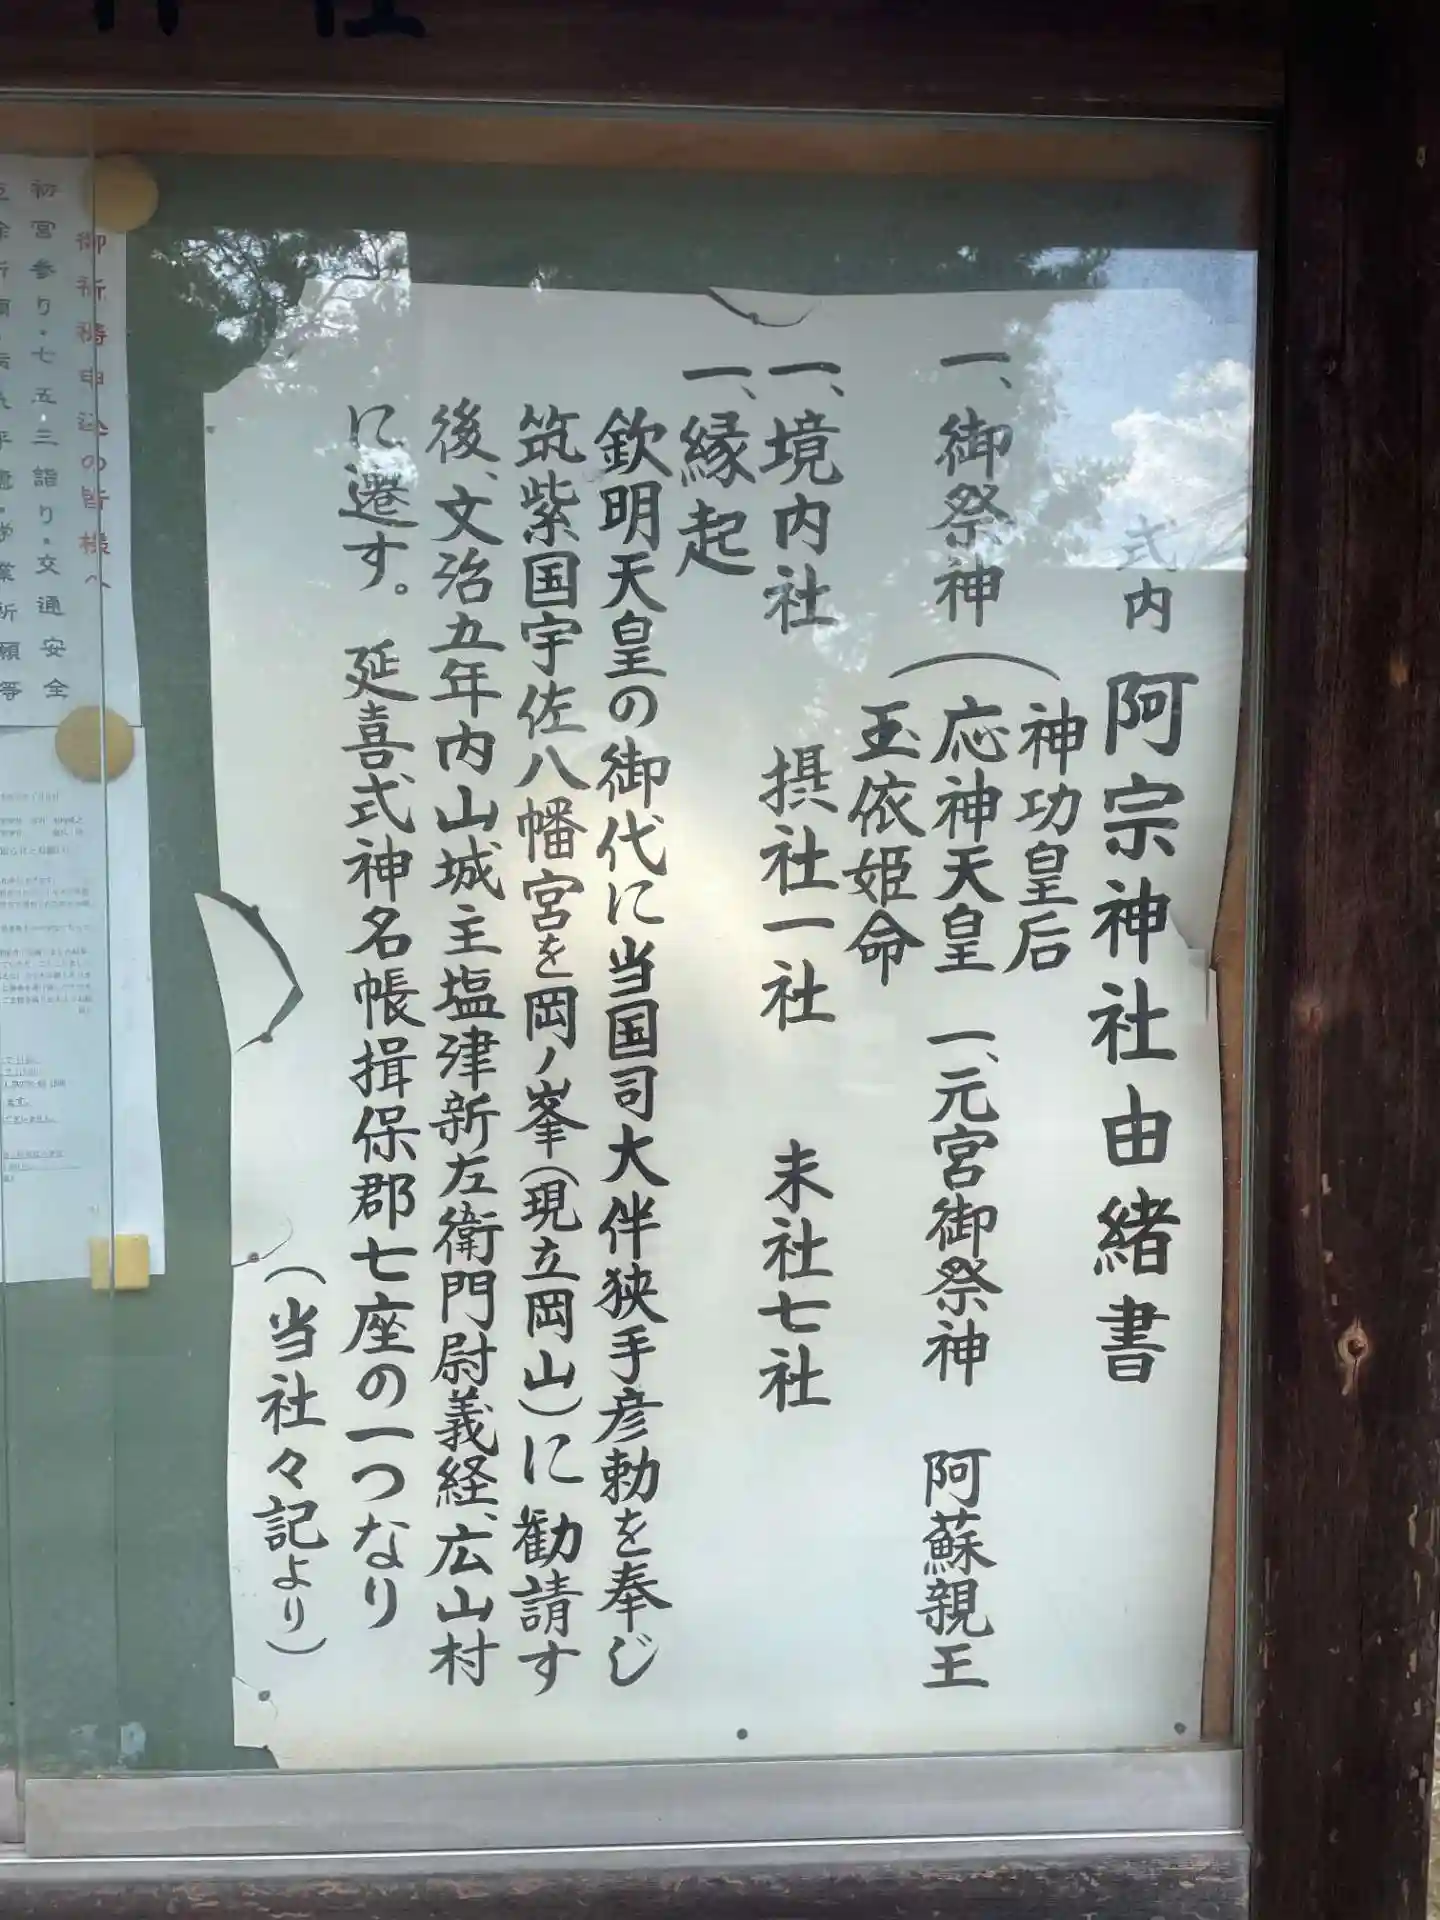 式内 阿宗神社由緒書
一、御祭神
神功皇后
応神天皇
玉依姫命
一、元宮御祭神 阿蘇親王
一、境内社 摂社一社 末社七社
一、縁起
欽明天皇の御代に当国司大伴狭手彦勅を奉じ
筑紫国宇佐八幡宮を岡ノ峯(現立岡山)に勧請す
後、文治五年内山城主塩津新左衛門尉義経、広山村
に遷す。 延喜式神名帳揖保郡七座の一つなり
(当社々記より)
御祈祷申込の皆様へ
初宮参り・七五三詣り・交通安全